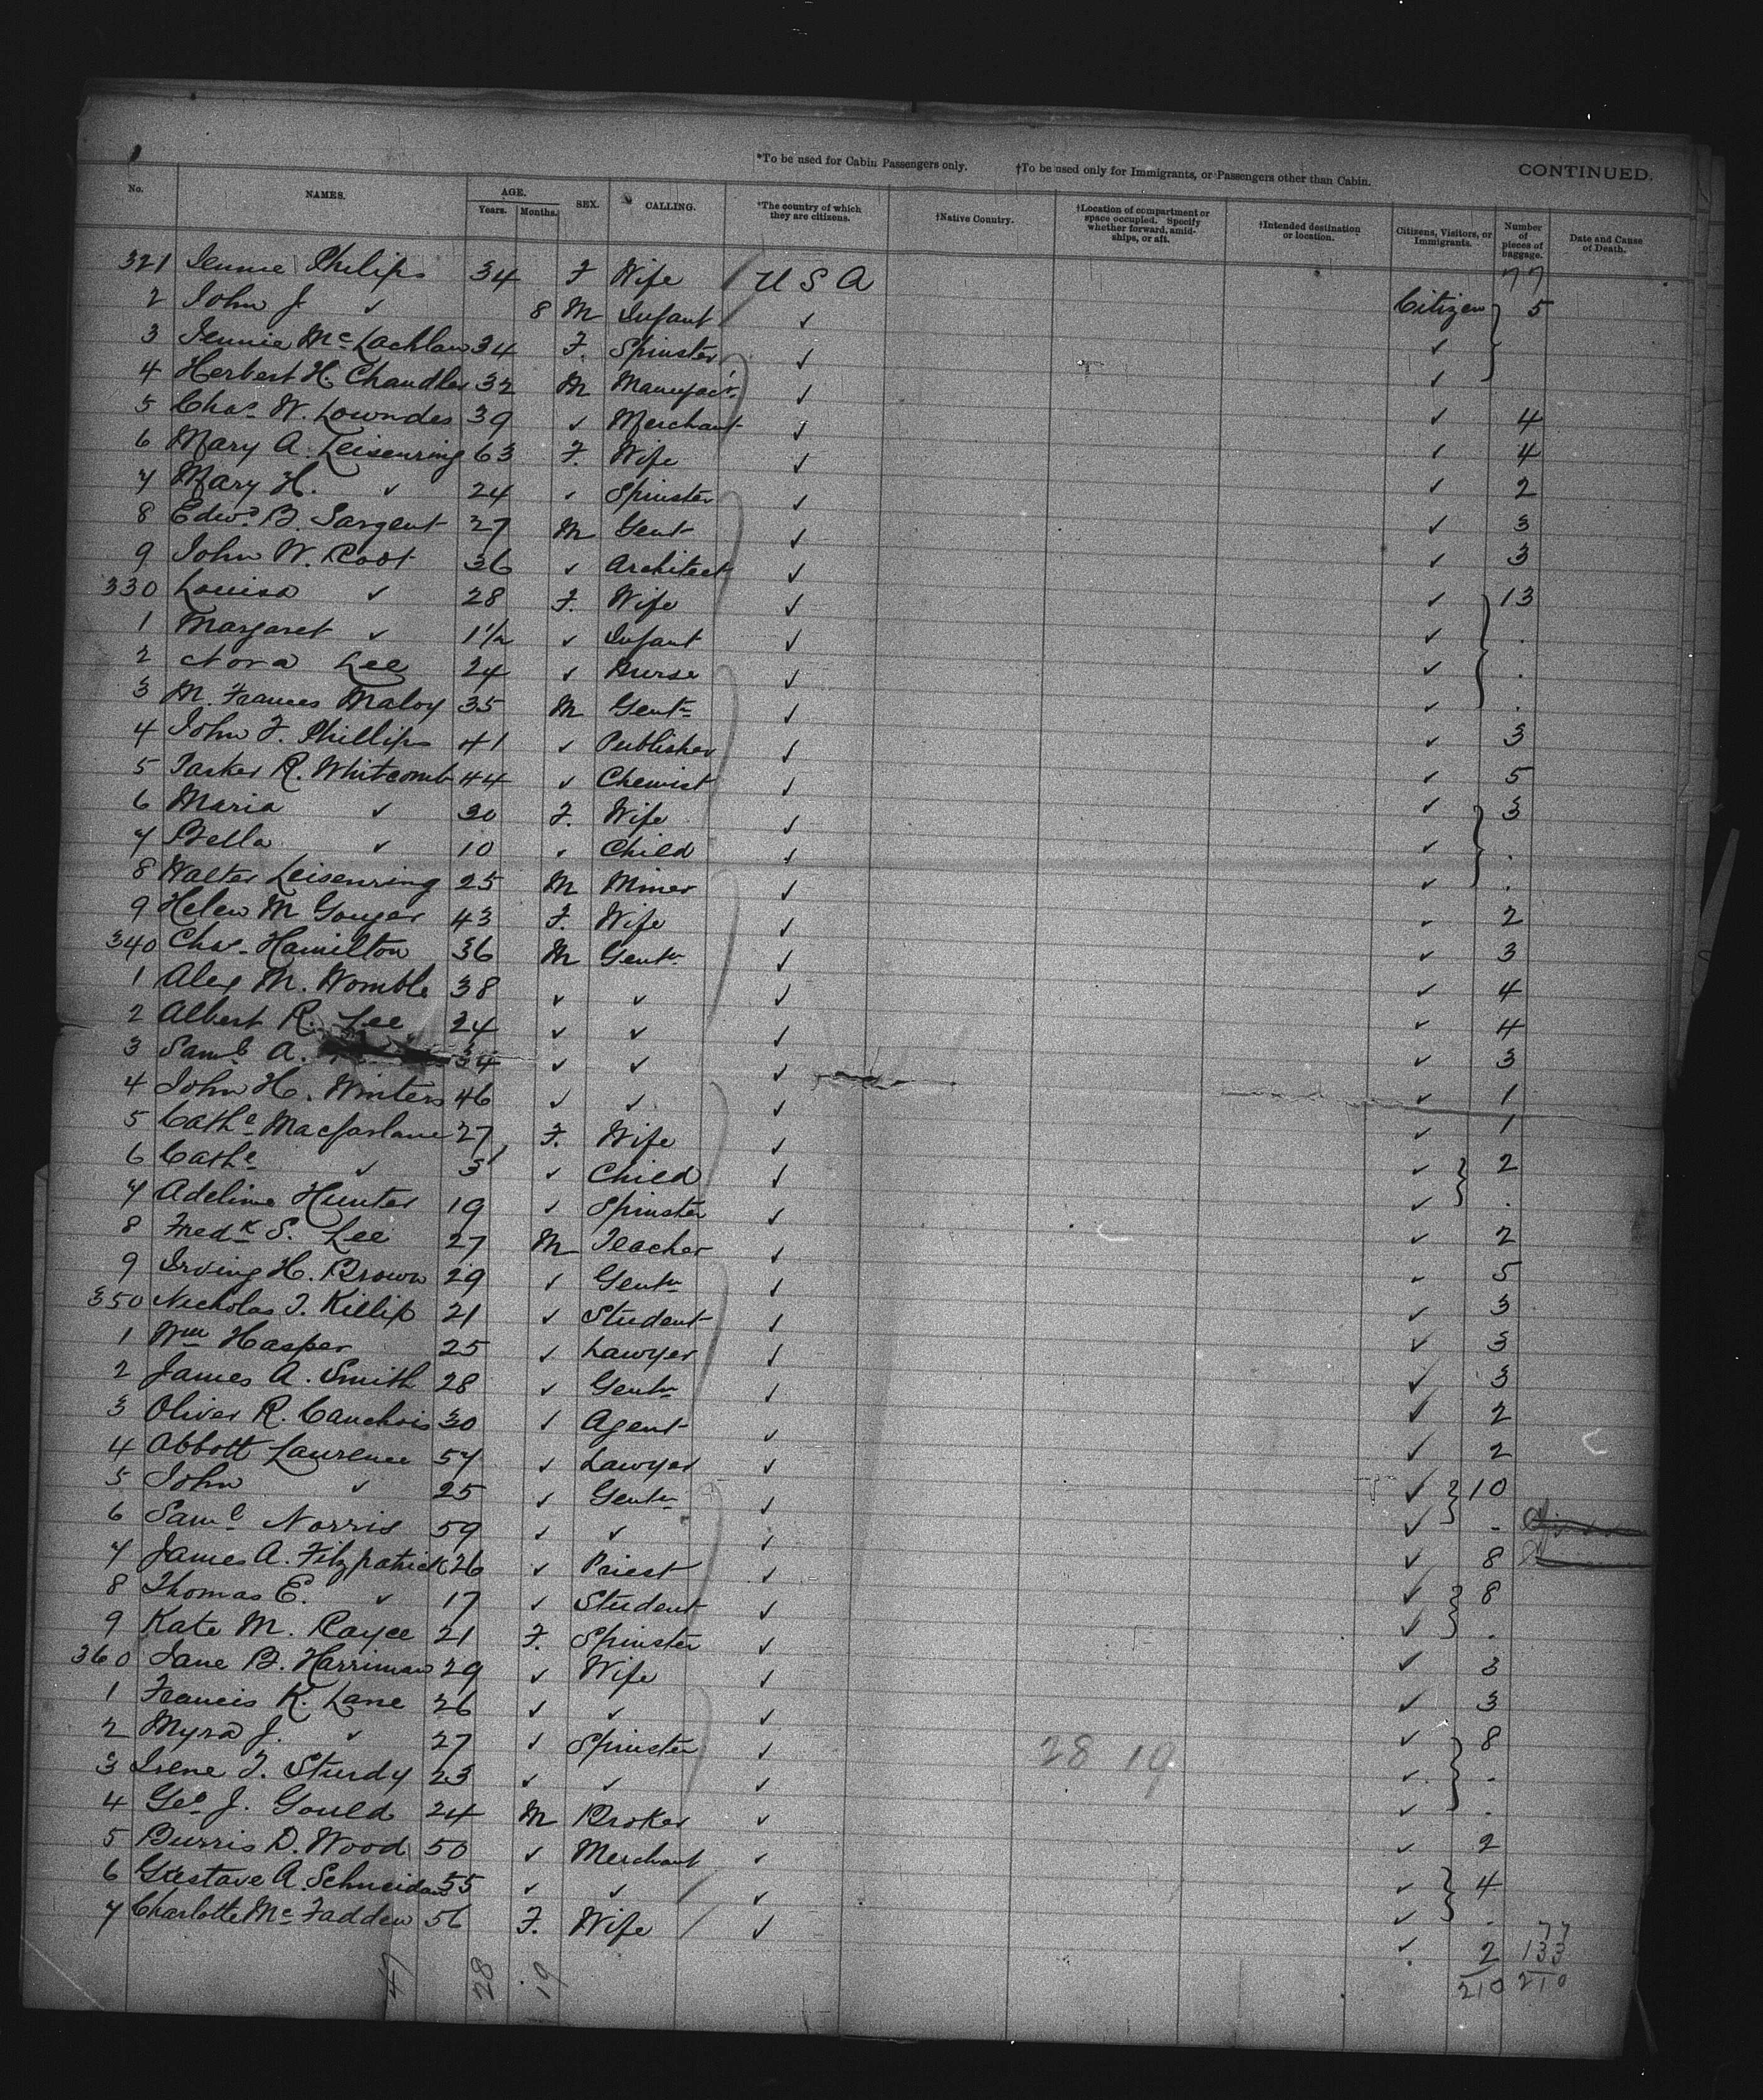 *To be used for Cabin Passengers only. †To be used only for Immigrants, or Passengers other than Cabin. CONTINUED.
No. NAMES. AGE. Years. Months. SEX. CALLING. *The country of which they are citizens. †Native Country. †Location of compartment or space occupied. Specify whether forward, amidships, or aft. †Intended destination or location. Citizens, Visitors, or Immigrants. Number of pieces of baggage. Date and Cause of Death.
77
321 Jennie Philips 34 F Wife U S A Citizen 5
2 John J ✓ 8 M Infant ✓ ✓
3 Jennie McLachlan 34 F. Spinster ✓ ✓
4 Herbert H. Chandler 32 M Manufacr ✓ ✓ 4
5 Chas W. Lowndes 39 ✓ Merchant ✓ ✓ 4
6 Mary A. Leisenring 63 F. Wife ✓ ✓ 2
7 Mary H. ✓ 24 ✓ Spinster ✓ ✓ 3
8 Edwd B. Sargent 27 M Gent ✓ ✓ 3
9 John W. Root 36 ✓ Architect ✓ ✓ 13
330 Louisa ✓ 28 F. Wife ✓ ✓ .
1 Margaret ✓ 1½ ✓ Infant ✓ ✓ .
2 Nora Lee 24 ✓ Nurse ✓ ✓ .
3 M. Frances Maloy 35 M Gentn ✓ ✓ 3
4 John F. Phillips 41 ✓ Publisher ✓ ✓ 5
5 Parker R. Whitcomb 44 ✓ Chemist ✓ ✓ 3
6 Maria ✓ 30 F. Wife ✓ ✓ .
7 Bella ✓ 10 ✓ Child ✓ ✓ .
8 Walter Leisenring 25 M Miner ✓ ✓ 2
9 Helen M Gougar 43 F. Wife ✓ ✓ 3
340 Chas Hamilton 36 M Gentn ✓ ✓ 4
1 Alex M. Womble 38 ✓ ✓ ✓ ✓ 4
2 Albert R. Lee 24 ✓ ✓ ✓ ✓ 3
3 Saml A. 34 ✓ ✓ ✓ ✓ 1
4 John H. Winters 46 ✓ ✓ ✓ ✓ 1
5 Cathe Macfarlane 27 F. Wife ✓ ✓ 2
6 Cathe ✓ 5 ✓ Child ✓ ✓ .
7 Adeline Hunter 19 ✓ Spinster ✓ ✓ 2
8 Fredk S. Lee 27 M Teacher ✓ ✓ 5
9 Irving H. Brown 29 ✓ Gentn ✓ ✓ 3
350 Nicholas T. Killip 21 ✓ Student ✓ ✓ 3
1 Wm Hasper 25 ✓ Lawyer ✓ ✓ 3
2 James A. Smith 28 ✓ Gentn ✓ ✓ 2
3 Oliver R. Cauchois 30 ✓ Agent ✓ ✓ 2
4 Abbott Laurence 57 ✓ Lawyer ✓ ✓ 10
5 John ✓ 25 ✓ Gentn ✓ ✓ -
6 Saml Norris 59 ✓ ✓ ✓ ✓ 8
7 James A. Fitzpatrick 26 ✓ Priest ✓ ✓ 8
8 Thomas E. ✓ 17 ✓ Student ✓ ✓ .
9 Kate M. Rayce 21 F. Spinster ✓ ✓ 3
360 Jane B. Harriman 29 ✓ Wife ✓ ✓ 3
1 Francis K. Lane 26 ✓ ✓ ✓ ✓ 8
2 Myra J. ✓ 27 ✓ Spinster ✓ ✓ -
3 Irene T. Sturdy 23 ✓ ✓ ✓ 28 19 ✓ .
4 Geo J. Gould 24 M Broker ✓ ✓ 2
5 Burris D. Wood 50 ✓ Merchant ✓ ✓ 4
6 Gustave A. Schneidam 55 ✓ ✓ ✓ ✓ -
7 Charlotte McFadden 56 F. Wife ✓ ✓ 2
47 28 19 210 77 133 210